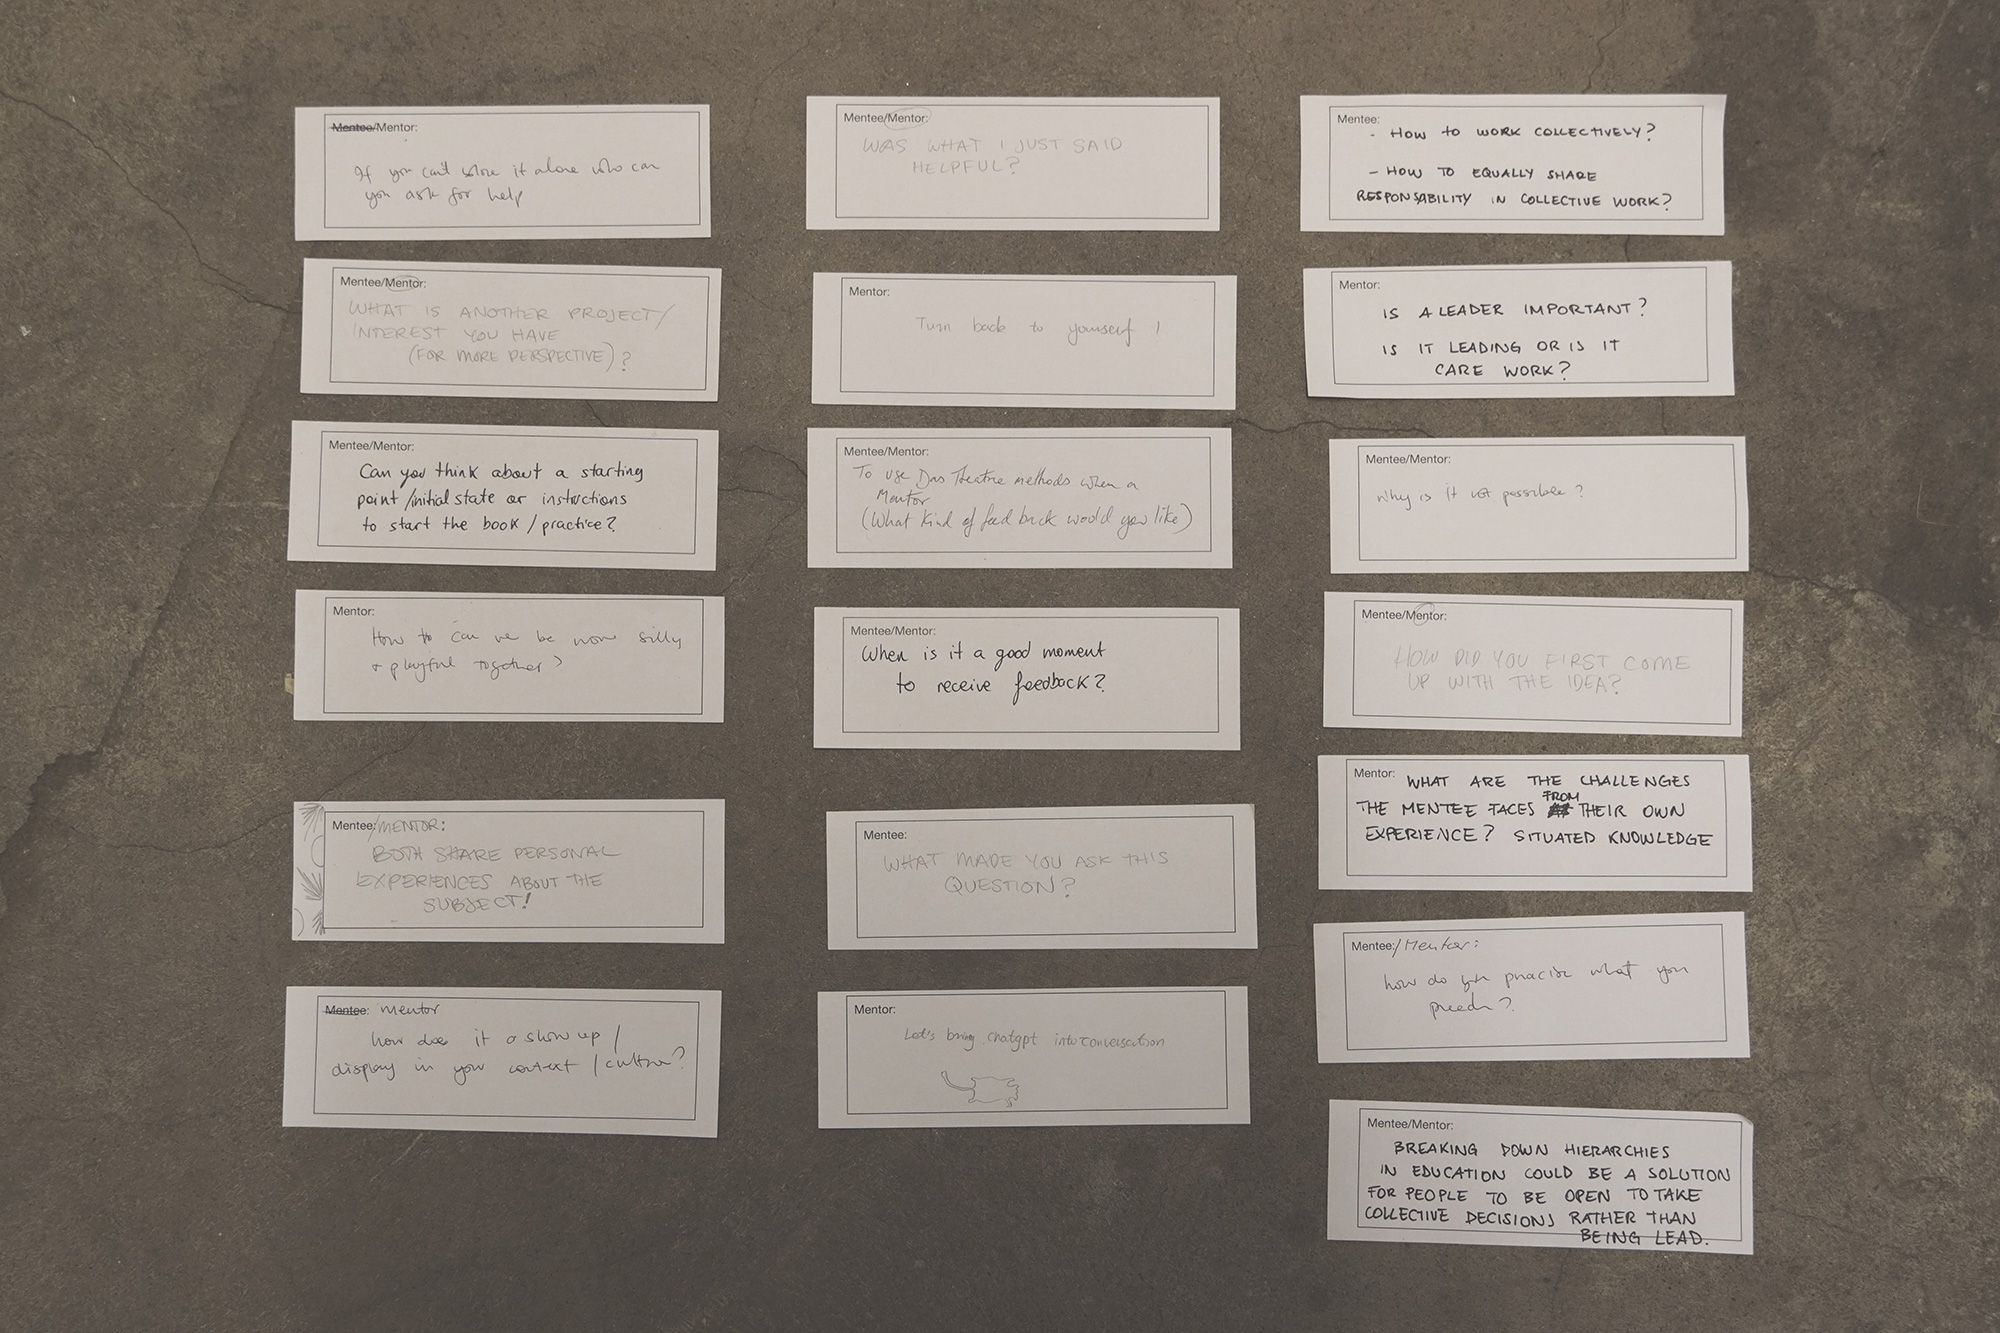 Mentee/Mentor:
If you can't solve it alone who can
you ask for help
Mentee/Mentor:
WHAT IS ANOTHER PROJECT/
INTEREST YOU HAVE
(FOR MORE PERSPECTIVE)?
Mentee/Mentor:
Can you think about a starting
point/initial state or instructions
to start the book/practice?
Mentor:
How to can we be more silly
+ playful together?
Mentee:/MENTOR:
BOTH SHARE PERSONAL
EXPERIENCES ABOUT THE
SUBJECT!
Mentee: mentor
how does it show up/
display in your context/culture?
Mentee/Mentor:
WAS WHAT I JUST SAID
HELPFUL?
Mentor:
Turn back to yourself!
Mentee/Mentor:
To use Das Theatre methods when a
Mentor
(What kind of feed back would you like)
Mentee/Mentor:
When is it a good moment
to receive feedback?
Mentee:
WHAT MADE YOU ASK THIS
QUESTION?
Mentor:
Let's bring chatgpt into conversation
Mentee:
- HOW TO WORK COLLECTIVELY?
- HOW TO EQUALLY SHARE
RESPONSABILITY IN COLLECTIVE WORK?
Mentor:
IS A LEADER IMPORTANT?
IS IT LEADING OR IS IT
CARE WORK?
Mentee/Mentor:
Why is it not possible?
Mentee/Mentor:
HOW DID YOU FIRST COME
UP WITH THE IDEA?
Mentor: WHAT ARE THE CHALLENGES
THE MENTEE FACES FROM THEIR OWN
EXPERIENCE? SITUATED KNOWLEDGE
Mentee:/Mentor:
how do you practise what you
preach?
Mentee/Mentor:
BREAKING DOWN HIERARCHIES
IN EDUCATION COULD BE A SOLUTION
FOR PEOPLE TO BE OPEN TO TAKE
COLLECTIVE DECISIONS RATHER THAN
BEING LEAD.